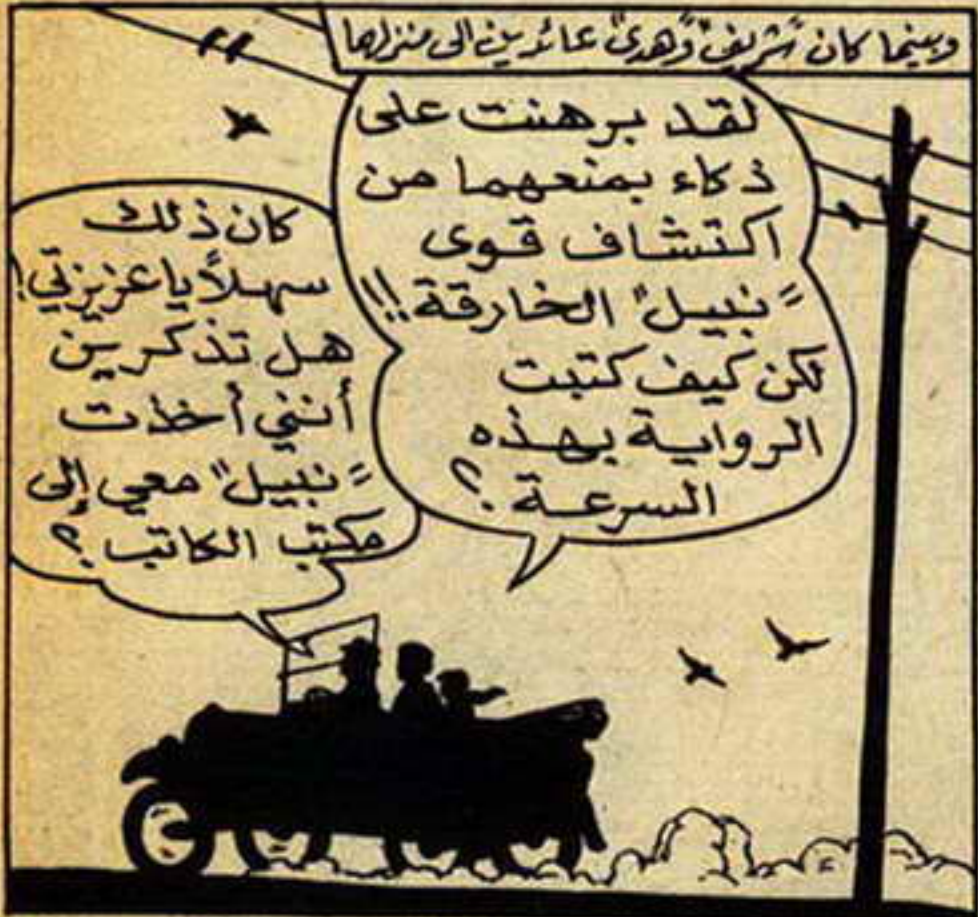 وبينما كان "شريف" و"هدى" عائدين الى منزلهما
لقد برهنت على
ذكاء بمنعهما من
اكتشاف قوى
"نبيل" الخارقة!!
لكن كيف كتبت
الرواية بهذه
السرعة؟
كان ذلك
سهلاً يا عزيزتي!
هل تذكرين
أنني أخذت
"نبيل" معي إلى
مكتب الكاتب؟